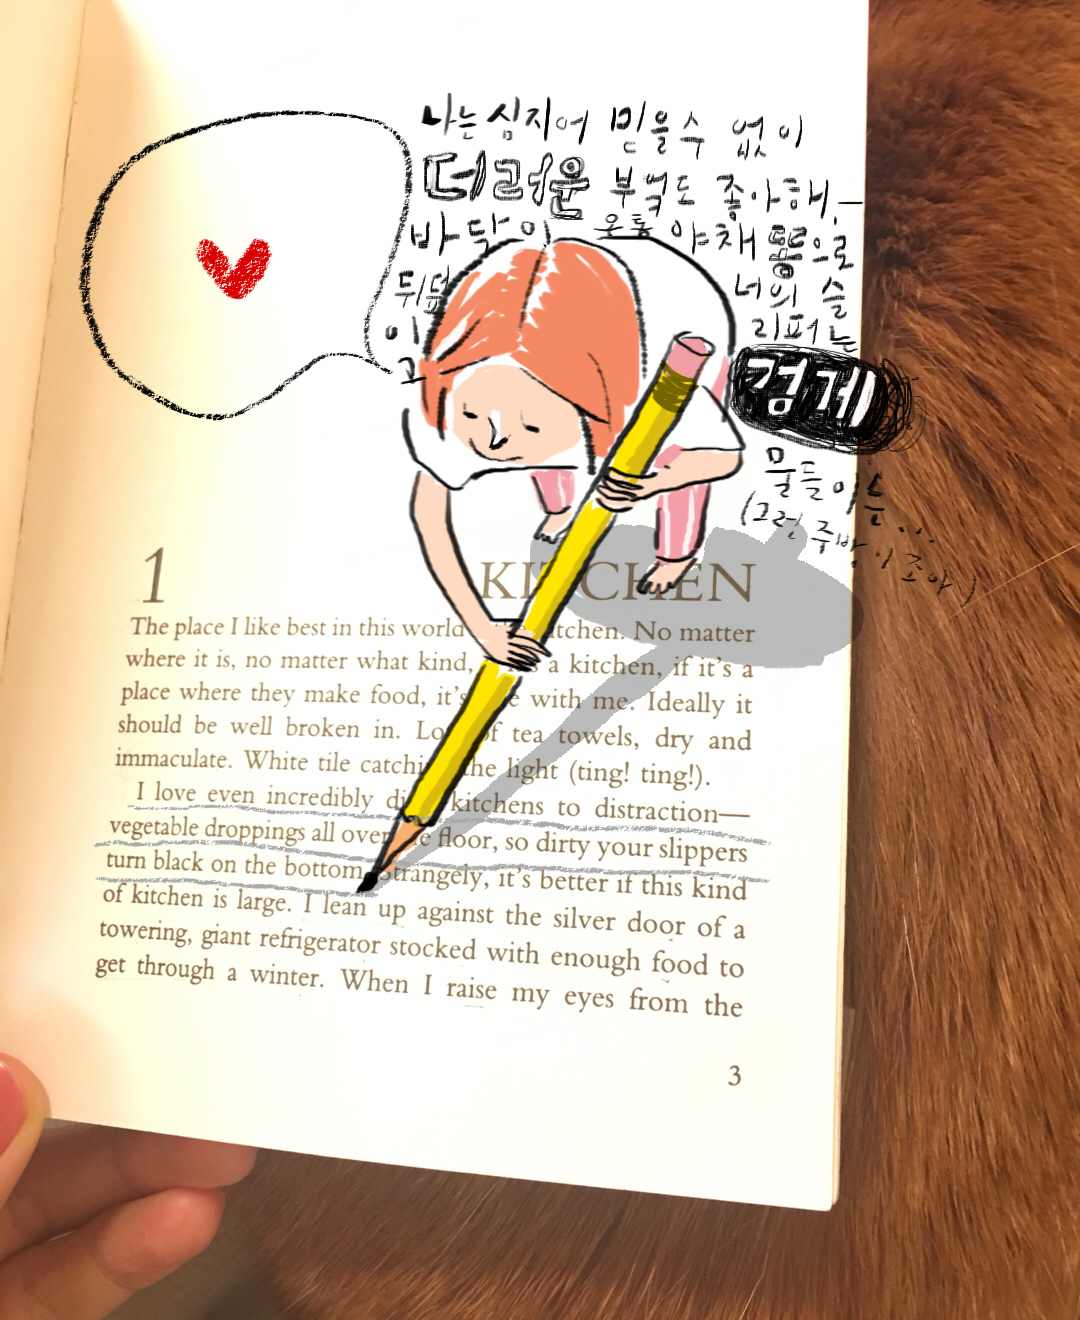 나는 심지어 믿을수 없이
더러운 부엌도 좋아해,—
바닥이 온통 야채 똥으로
뒤덮 너의 슬
이 리퍼는
고 검게
물들이는...
(그런 주방이 좋아)
1 KITCHEN
The place I like best in this world kitchen. No matter
where it is, no matter what kind, a kitchen, if it's a
place where they make food, it's with me. Ideally it
should be well broken in. of tea towels, dry and
immaculate. White tile the light (ting! ting!).
I love even incredibly kitchens to distraction—
vegetable droppings all over floor, so dirty your slippers
turn black on the bottom. Strangely, it's better if this kind
of kitchen is large. I lean up against the silver door of a
towering, giant refrigerator stocked with enough food to
get through a winter. When I raise my eyes from the
3